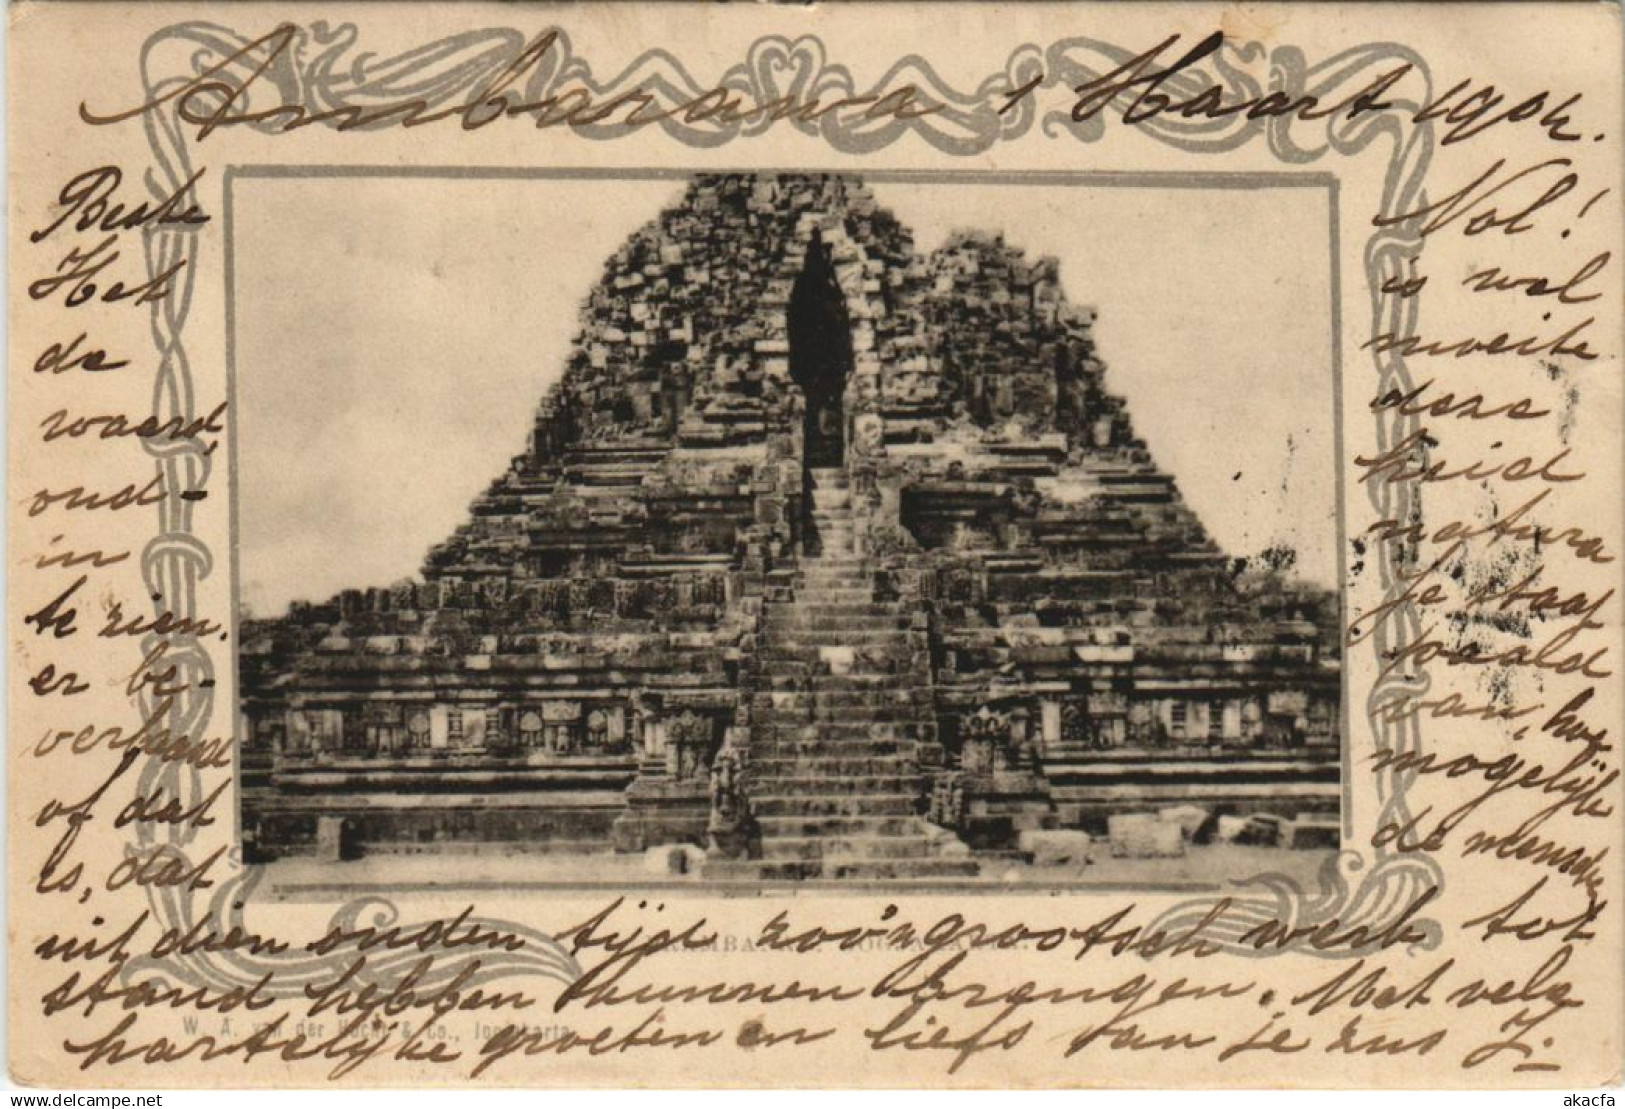 Ambarawa 1 Maart 1904.
Beste Nol!
Het is wel
de moeite
waard, deze
oud- heid
in natura
te zien. Je staat
er be- paald
verbaasd van, hoe
of dat mogelijk
is, dat de menschen
uit dien ouden tijd zoo'n grootsch werk tot
stand hebben kunnen brengen. Met vele
hartelijke groeten en liefs van je zus J.
W. A. van der Hucht & Co., Jocjakarta
akacfa